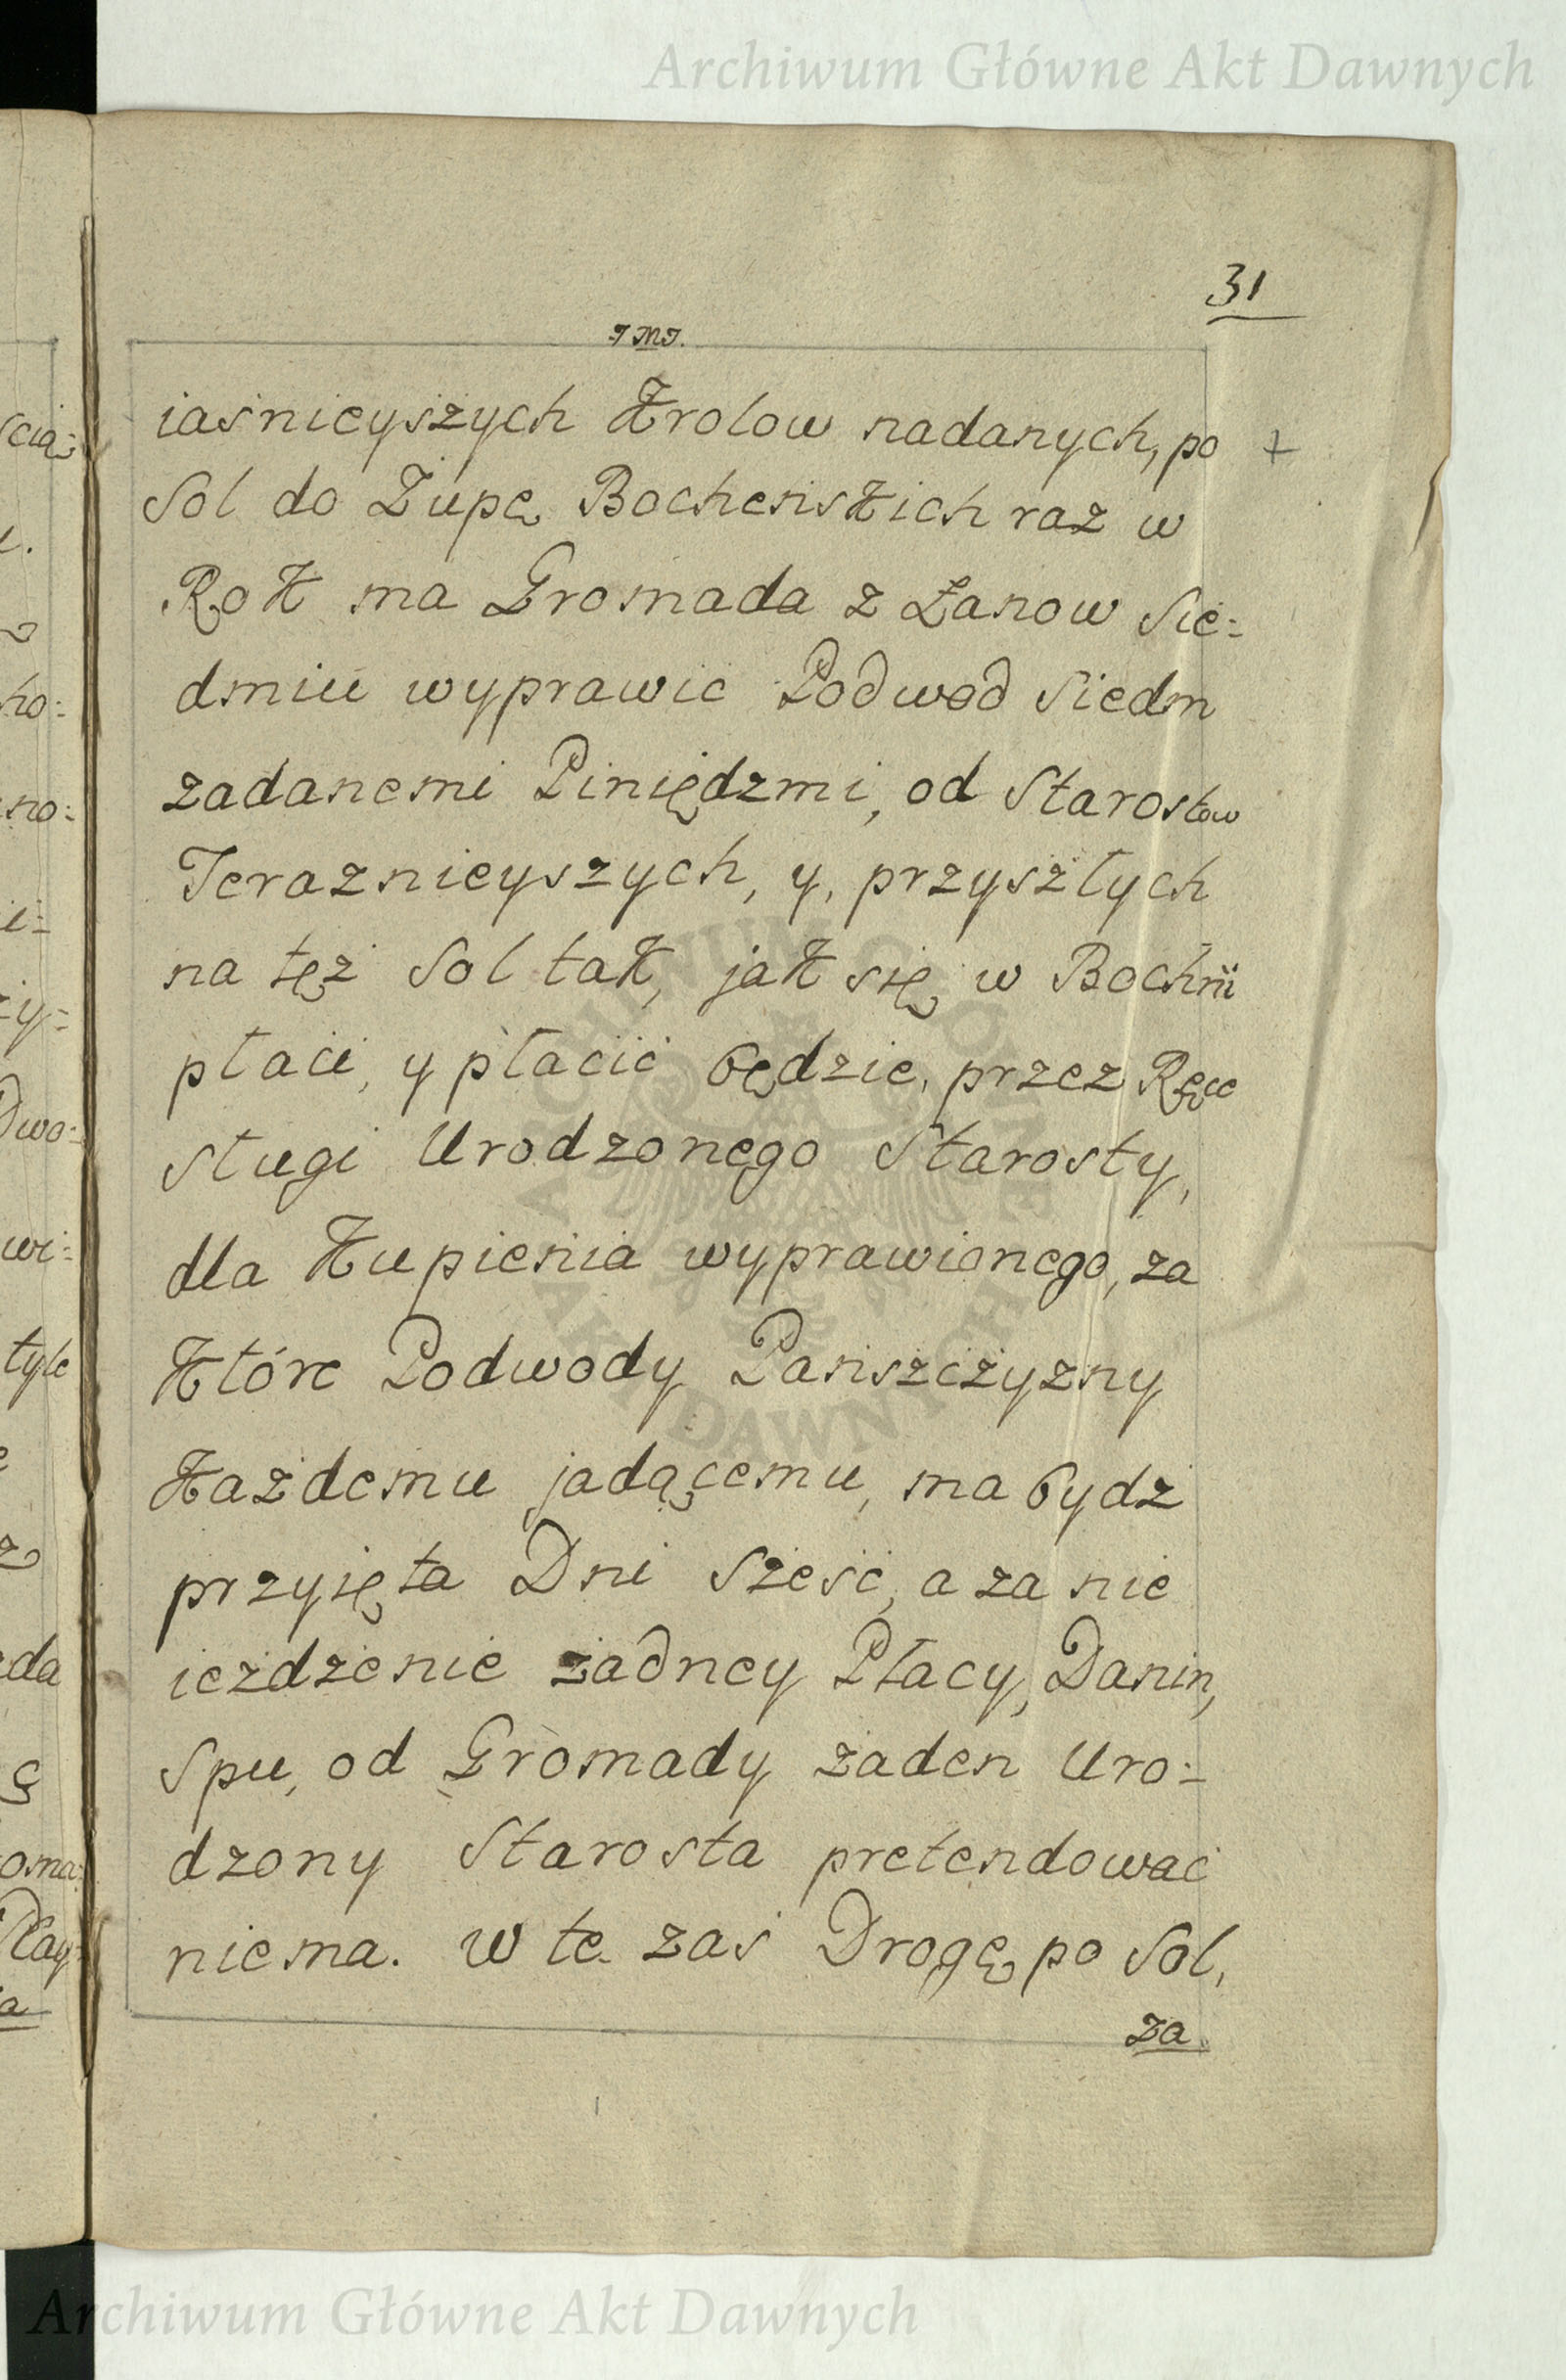 Archiwum Główne Akt Dawnych
31
J M J.
iaśnieyszych Krolow nadanych, po +
Sol do Żupę Bocheńskich raz w
Rok ma Gromada z Łanow Sie-
dmiu wyprawić Podwod Siedm
zadanemi Piniędzmi, od Starostow
Teraznieyszych, y, przyszłych
na tęż Sol tak, jak się w Bochni
płaci, y płacić będzie, przez Ręce
sługi Urodzonego Starosty,
dla Kupienia wyprawionego, za
Które Podwody Pańszczyzny
Każdemu jadącemu, ma bydź
przyięta Dni Sześć, a za nie
ieżdżenie żadney Płacy, Danin,
Spu, od Gromady żaden Uro-
dzony Starosta pretendować
niema. w te zaś Drogę po Sol,
za
Archiwum Główne Akt Dawnych